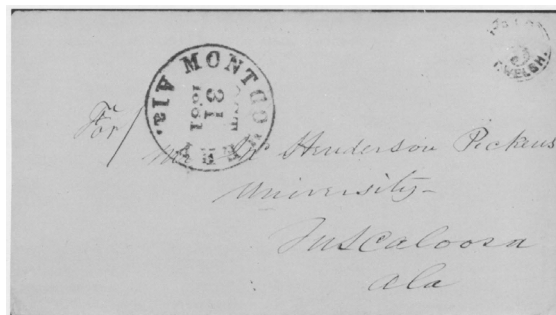 MONTGOMERY Ala.
31
1861
WELSH.
For/
Henderson Pickens
University
Tuscaloosa
Ala